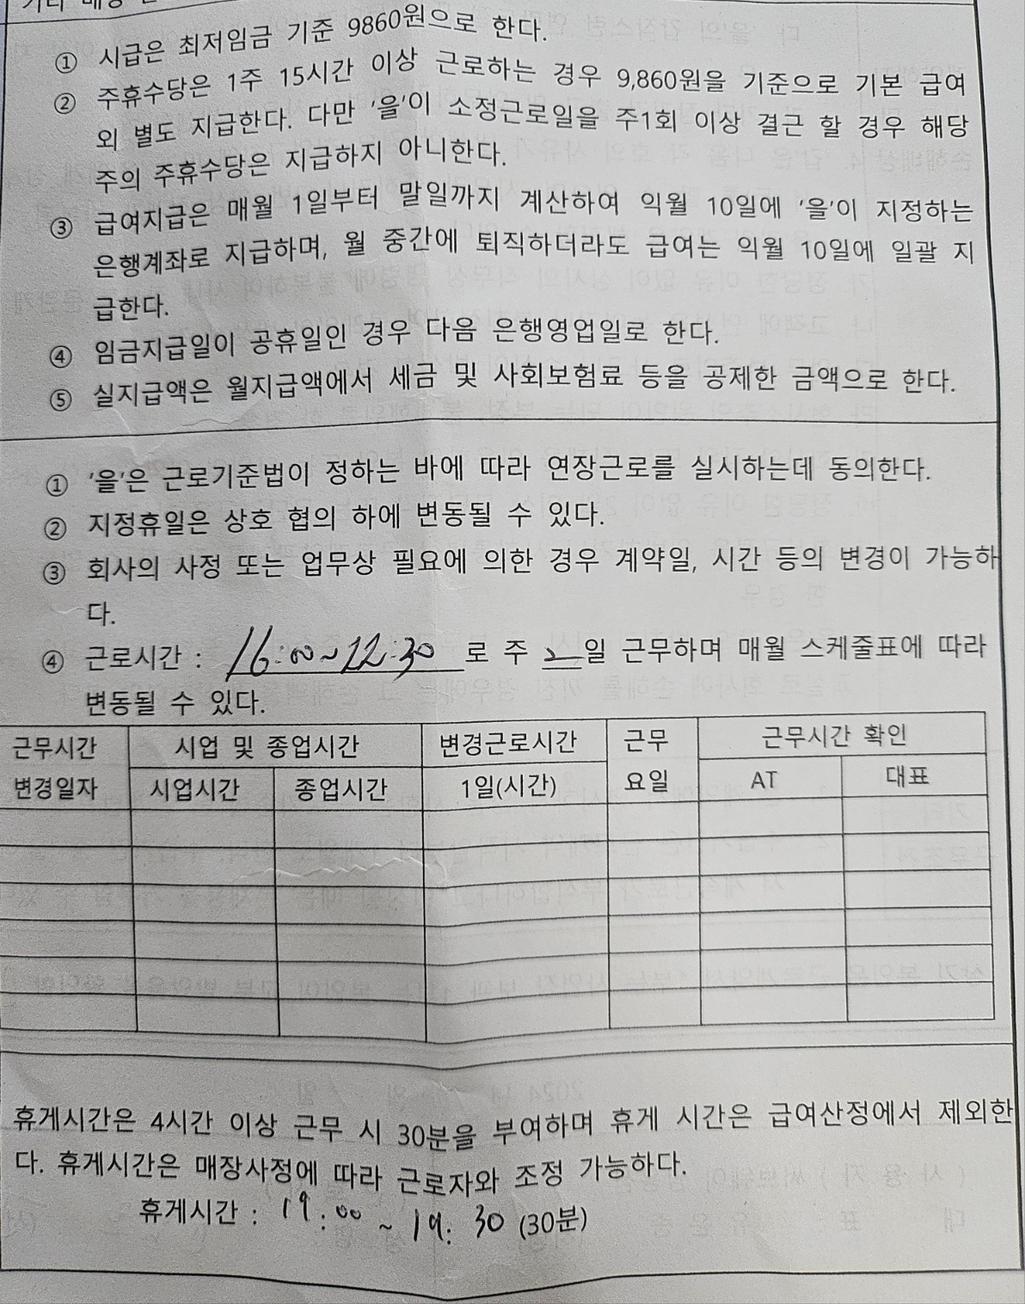 ① 시급은 최저임금 기준 9860원으로 한다.
② 주휴수당은 1주 15시간 이상 근로하는 경우 9,860원을 기준으로 기본 급여
외 별도 지급한다. 다만 '을'이 소정근로일을 주1회 이상 결근 할 경우 해당
주의 주휴수당은 지급하지 아니한다.
③ 급여지급은 매월 1일부터 말일까지 계산하여 익월 10일에 '을'이 지정하는
은행계좌로 지급하며, 월 중간에 퇴직하더라도 급여는 익월 10일에 일괄 지
급한다.
④ 임금지급일이 공휴일인 경우 다음 은행영업일로 한다.
⑤ 실지급액은 월지급액에서 세금 및 사회보험료 등을 공제한 금액으로 한다.
① '을'은 근로기준법이 정하는 바에 따라 연장근로를 실시하는데 동의한다.
② 지정휴일은 상호 협의 하에 변동될 수 있다.
③ 회사의 사정 또는 업무상 필요에 의한 경우 계약일, 시간 등의 변경이 가능하
다.
④ 근로시간 : 16:00~22:30 로 주 2일 근무하며 매월 스케줄표에 따라
변동될 수 있다.
근무시간 시업 및 종업시간 변경근로시간 근무 근무시간 확인
변경일자 시업시간 종업시간 1일(시간) 요일 AT 대표
휴게시간은 4시간 이상 근무 시 30분을 부여하며 휴게 시간은 급여산정에서 제외한
다. 휴게시간은 매장사정에 따라 근로자와 조정 가능하다.
휴게시간 : 19:00 ~ 19:30 (30분)